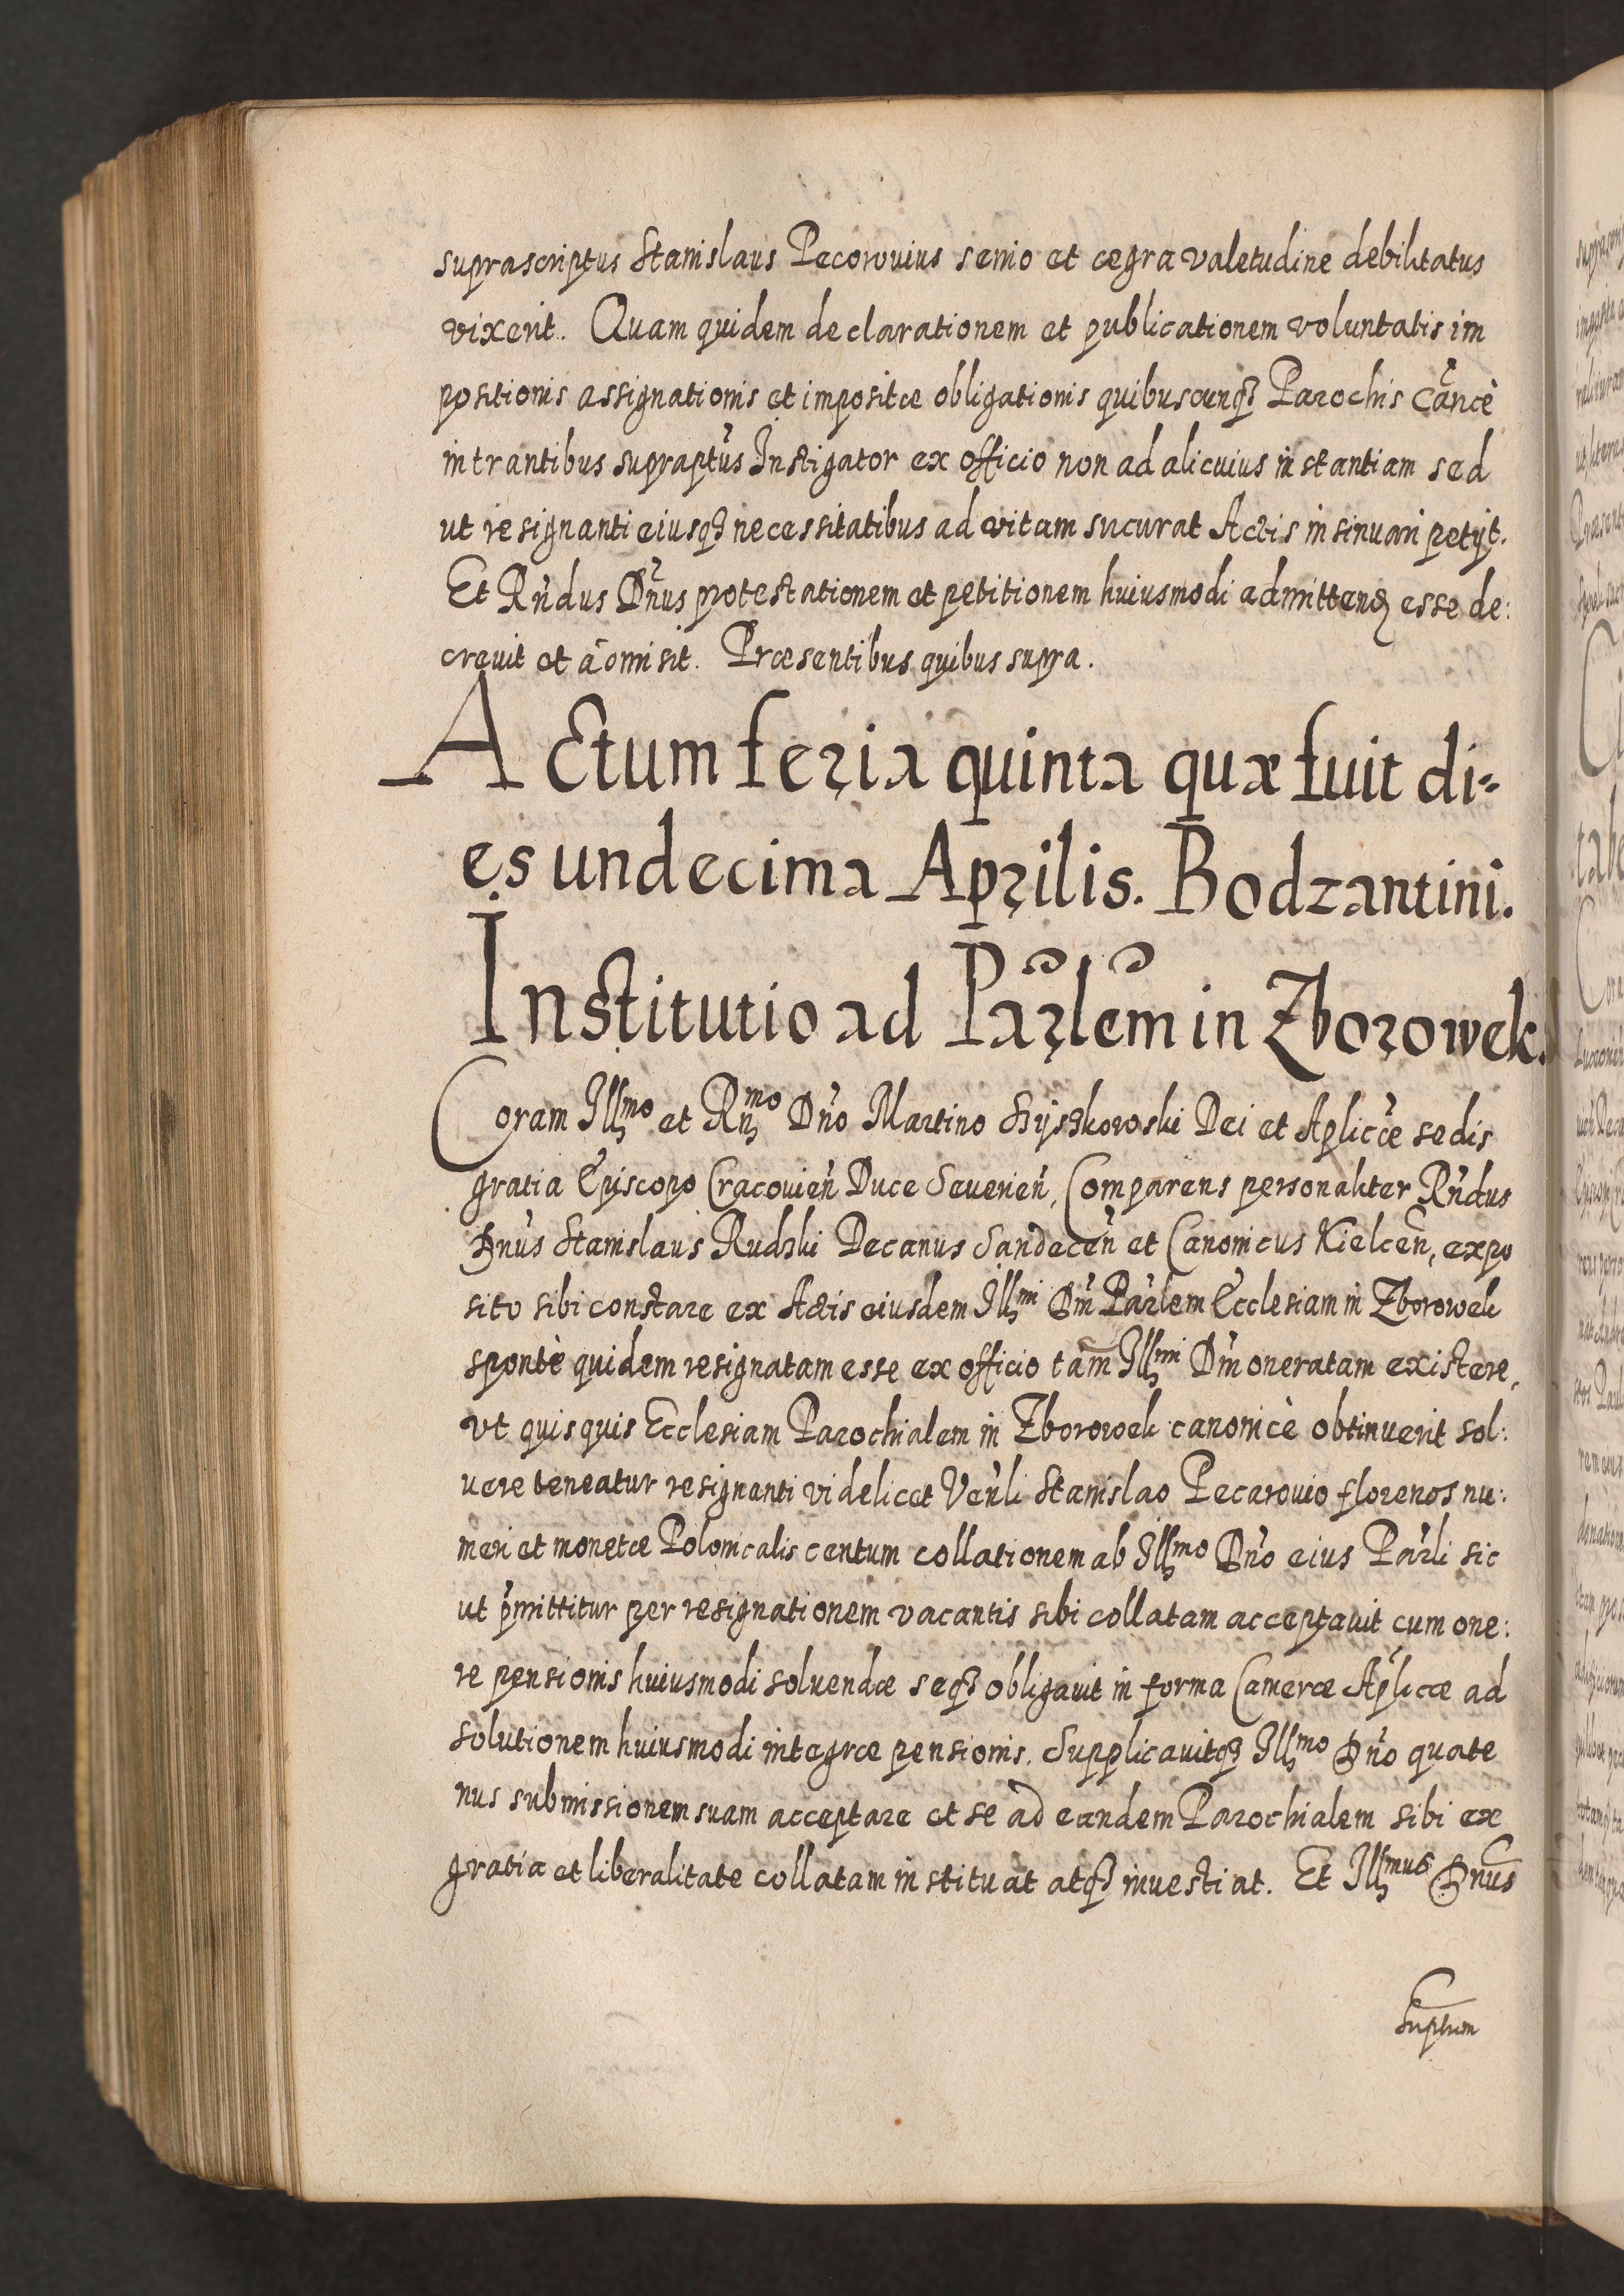 suprascriptus Stanislaus Pecorovius senio et ægra valetudine debilitatus
vixerit. Quam quidem declarationem et publicationem voluntatis im
positionis assignationis et impositæ obligationis quibuscunq₃ Parochis Cañcè
intrantibus supraptus̃ Instigator ex officio non ad alicuius instantiam sed
ut resignanti eiusq₃ necessitatibus ad vitam sucurat Actis insinuari petijt.
Et Rñdus Dñus protestationem et petitionem huiusmodi admittenđ esse de:
crevit et admisit. Præsentibus quibus supra.
Actum feria quinta quæ fuit di=
es undecima Aprilis. Bodzantini.
Institutio ad Pãrlẽm in Zborowek.
Coram Illmo et Rmo Dño Martino Szyszkowski Dei et Aplicæ̃ sedis
gratia Episcopo Cracovień Duce Severień, Comparens personaliter Rñdus
Dñus Stanislaus Rudzki Decanus Sandeceñ et Canonicus Kielceñ, expo
sito sibi constare ex Actis eiusdem Illmi Dñi Pãrlem Ecclesiam in Zborowek
spontè quidem resignatam esse ex officio tãm Illmi Dñi oneratam existere,
ut quisquis Ecclesiam Parochialem in Zborowek canonicè obtinuerit sol:
uere teneatur resignanti videlicet Veñli Stanislao Pecarovio florenos nu:
meri et monetæ Polonicalis centum collationem ab Illmo Dño eius Pãrli sic
ut p̃mittitur per resignationem vacantis sibi collatam acceptauit cum one:
re pensionis huiusmodi soluendæ seq₃ obligauit in forma Cameræ Aplicæ̃ ad
solutionem huiusmodi integræ pensionis. Supplicauitq₃ Illmo Dño quate
nus submissionem suam acceptare et se ad eandem Parochialem sibi ex
gratia et liberalitate collatam instituat atq₃ inuestiat. Et Illmus Dñus